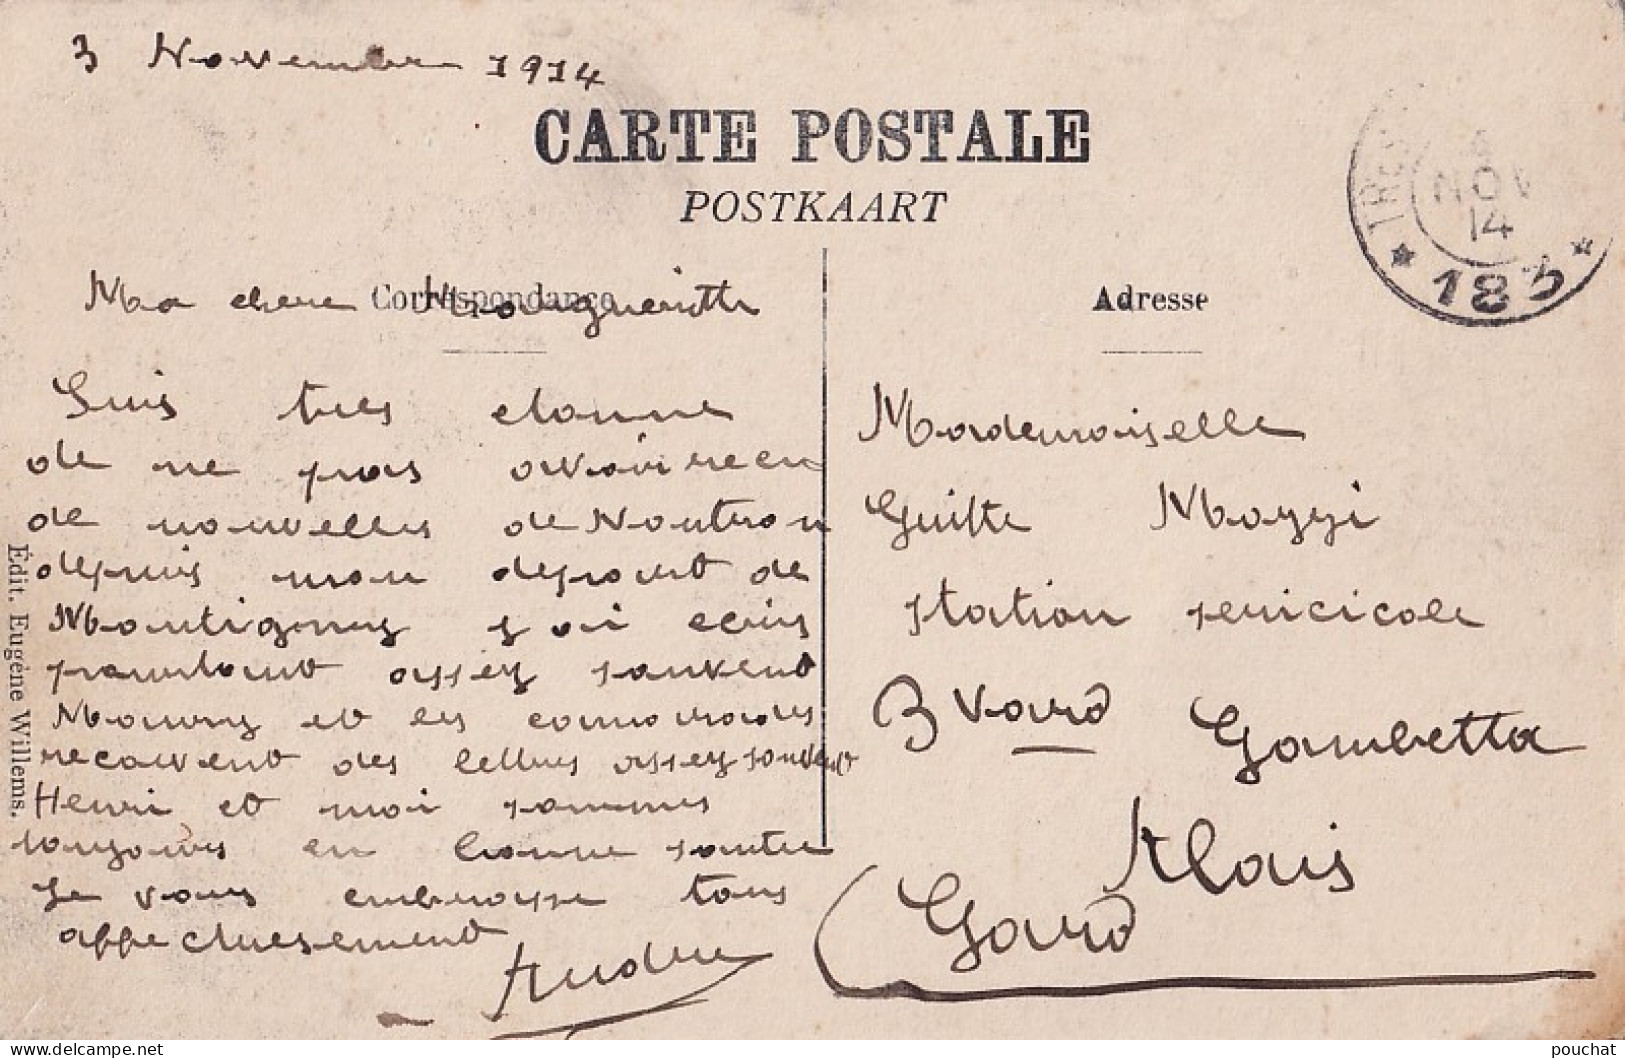 3 Novembre 1914
CARTE POSTALE
POSTKAART
TRES
4
NOV
14
* 183 *
Correspondance
Ma chere Margueritte
Suis tres etonne
de ne pas avoir recu
de nouvelles de Nontron
depuis mon depart de
Montigny j ai ecris
pourtant assez souvent
Maury et les camarades
recoivent des lettres assez souvent
Henri et moi sommes
toujours en bonne santee
Je vous embrasse tous
affectuesement
Andre
Adresse
Mademoiselle
Guitte Mazzi
station sericicole
Bvard Gambetta
Alais
(Gard
Édit. Eugène Willems.
delcampe.net
pouchat